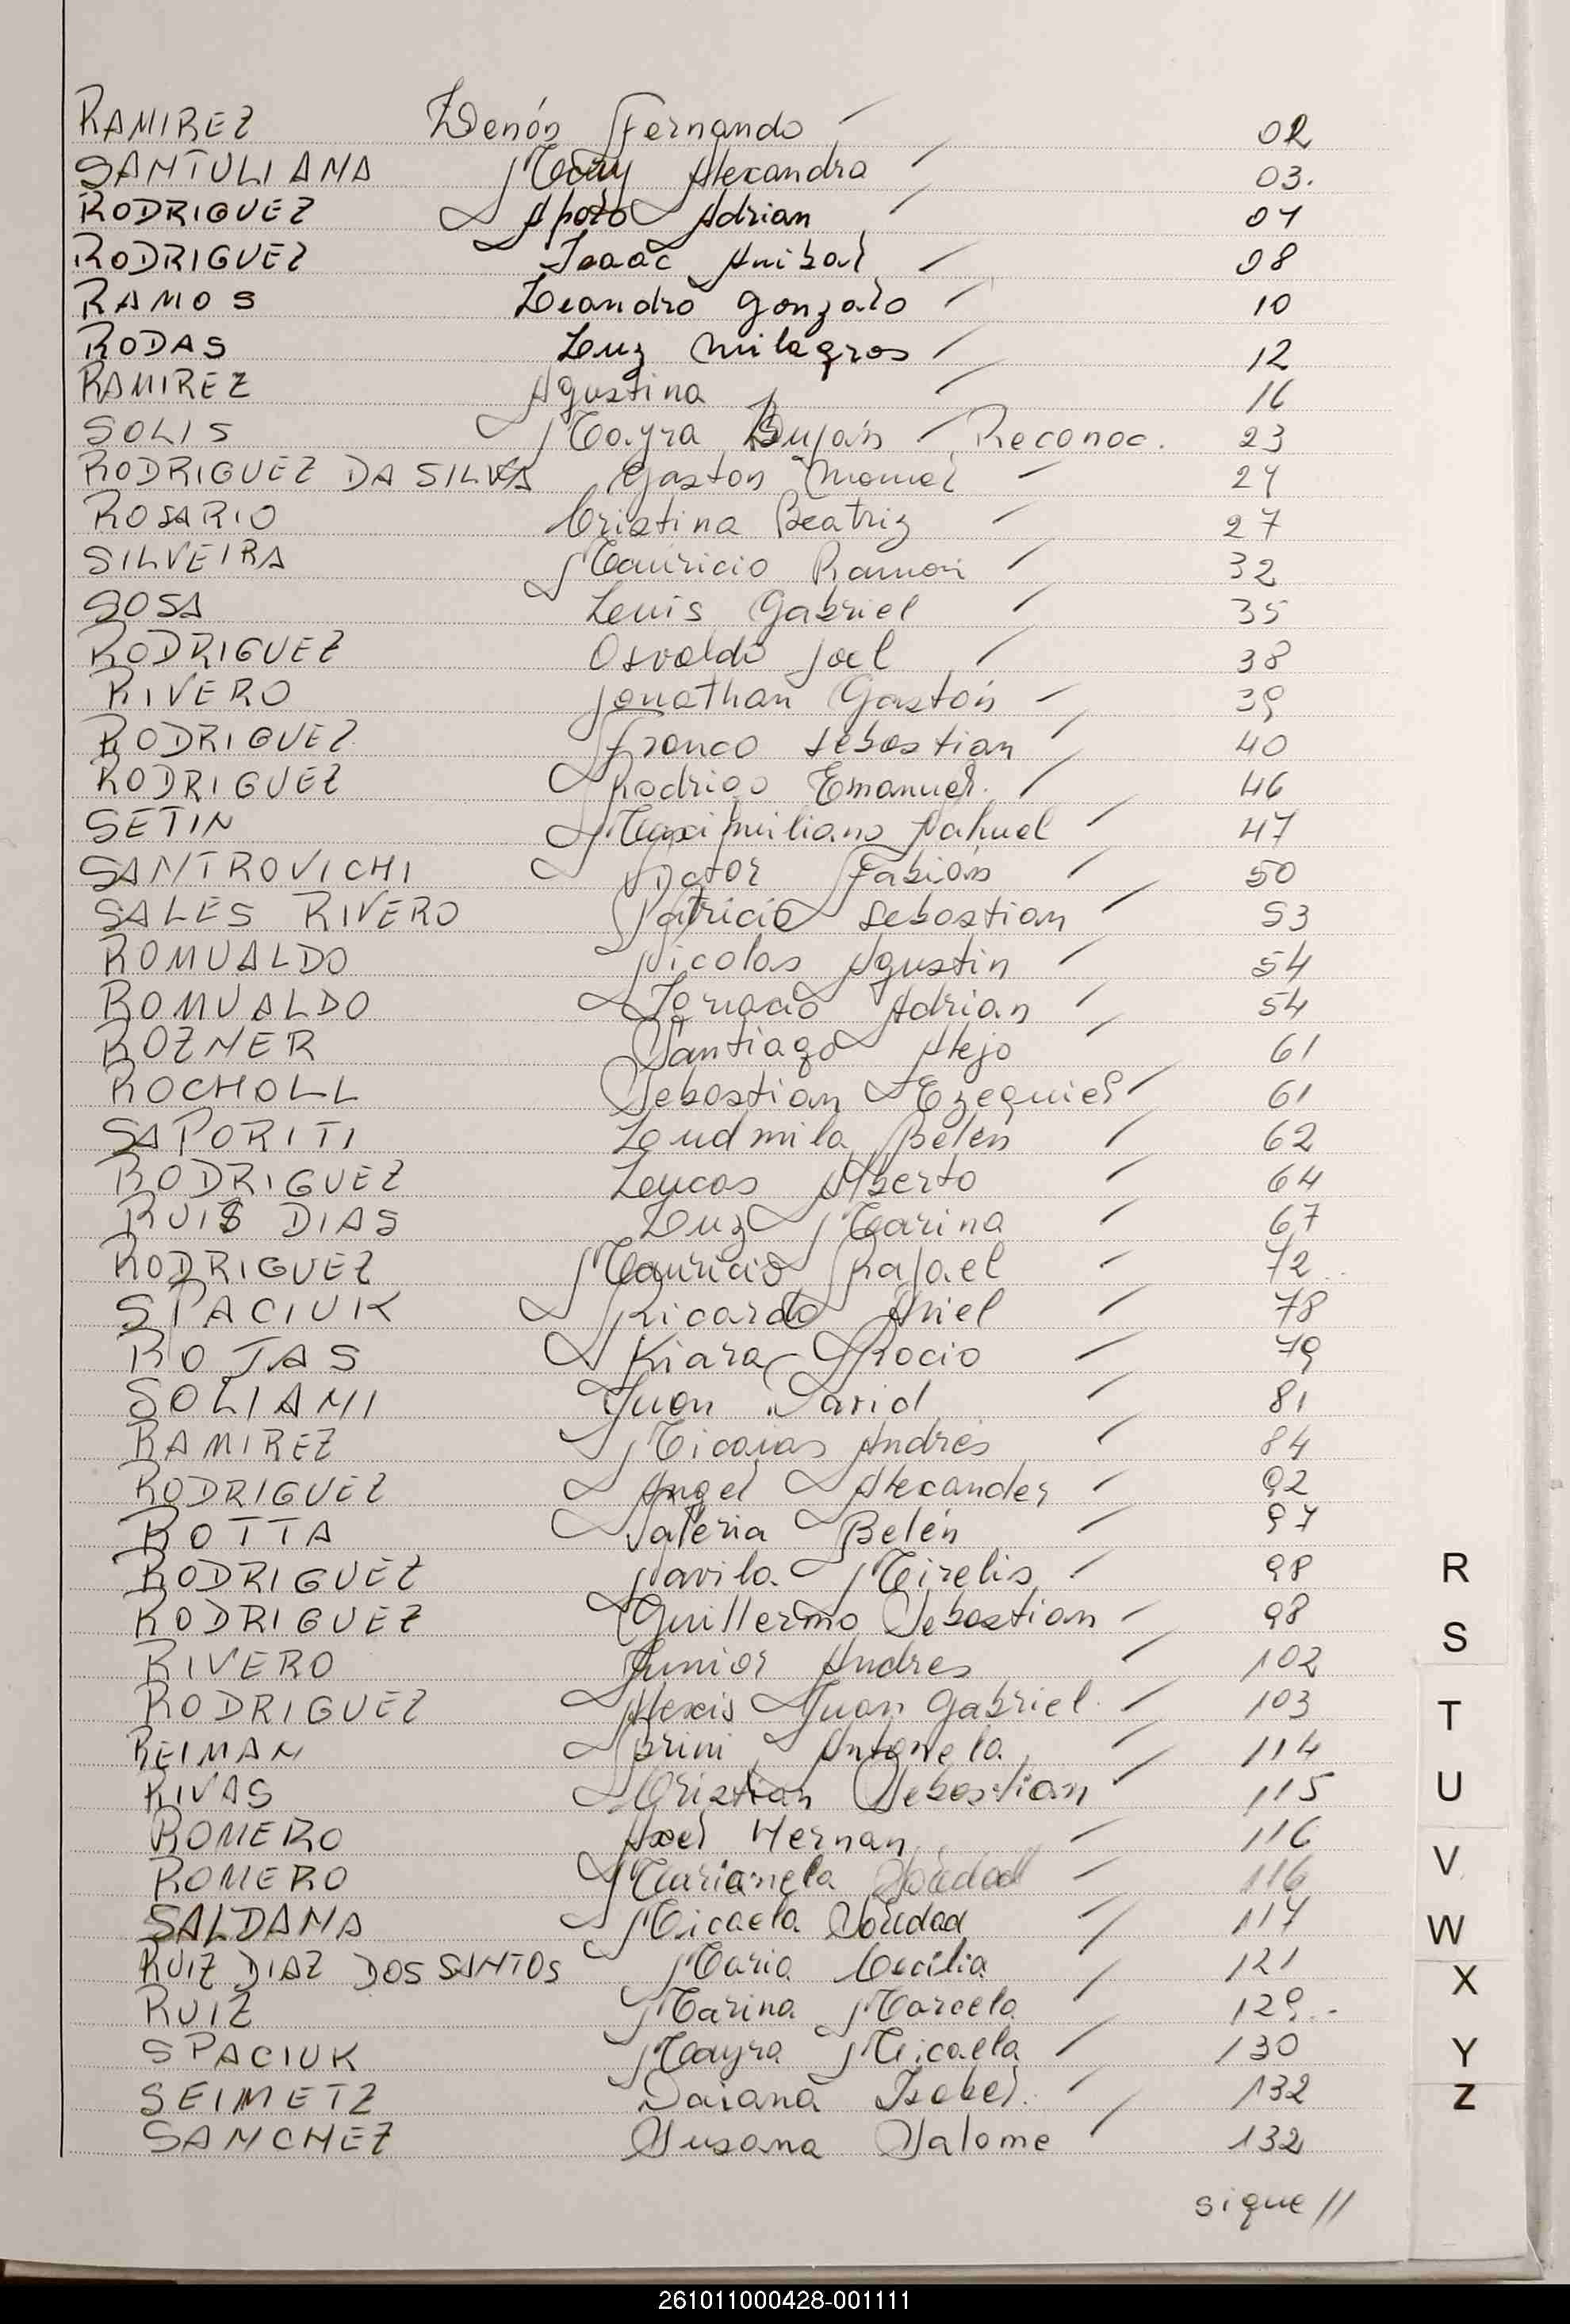 RAMIREZ Zenón Fernando 02
SANTULIANA Alexandra 03.
RODRIGUEZ Apolo Adrian 07
RODRIGUEZ Isaac Anibal 08
RAMOS Leandro Gonzalo 10
RODAS Luz Milagros 12
RAMIREZ Agustina 16
SOLIS Mayra Luján Reconoc. 23
RODRIGUEZ DA SILVA Gaston Manuel 24
ROSARIO Cristina Beatriz 27
SILVEIRA Mauricio Ramon 32
SOSA Luis Gabriel 35
RODRIGUEZ Osvaldo Joel 38
RIVERO Jonathan Gastón 39
RODRIGUEZ Franco Sebastian 40
RODRIGUEZ Rodrigo Emanuel. 46
SETIN Maximiliano Nahuel 47
SANTROVICHI Fabián 50
SALES RIVERO Patricio Sebastian 53
ROMUALDO Nicolas Agustin 54
ROMUALDO Ignacio Adrian 54
ROZNER Santiago Alejo 61
ROCHOLL Sebastian Ezequiel 61
SAPORITI Ludmila Belén 62
RODRIGUEZ Lucas Alberto 64
RUIS DIAS Luz Marina 67
RODRIGUEZ Mauricio Rafael 72
SPACIUK Ricardo Ariel 78
ROJAS Kiara Rocio 79
SOLIANI Juan David 81
RAMIREZ Andrés 84
RODRIGUEZ Angel Alexander 92
ROTTA Valeria Belén 97
RODRIGUEZ Mirelis 98
RODRIGUEZ Guillermo Sebastian 98
RIVERO Junior Andres 102
RODRIGUEZ Alexis Juan Gabriel. 103
REIMAN Antonela 114
RIVAS Cristian Sebastian 115
ROMERO Axel Hernan 116
ROMERO Marianela Soledad 116
SALDANA Micaela Soledad 117
RUIZ DIAZ DOS SANTOS Maria Cecilia 121
RUIZ Marina Marcela 129.-
SPACIUK Mayra Micaela 130
SEIMETZ Daiana Isabel. 132
SANCHEZ Susana Salome 132
sigue //
R
S
T
U
V
W
X
Y
Z
261011000428-001111